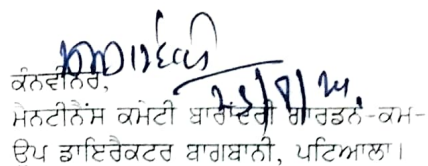 ਕੰਨਵੀਨਰ,
ਮੇਨਟੀਨੈਂਸ ਕਮੇਟੀ ਬਾਰਾਂਦਰੀ ਗਾਰਡਨ-ਕਮ-
ਉਪ ਡਾਇਰੈਕਟਰ ਬਾਗਬਾਨੀ, ਪਟਿਆਲਾ।